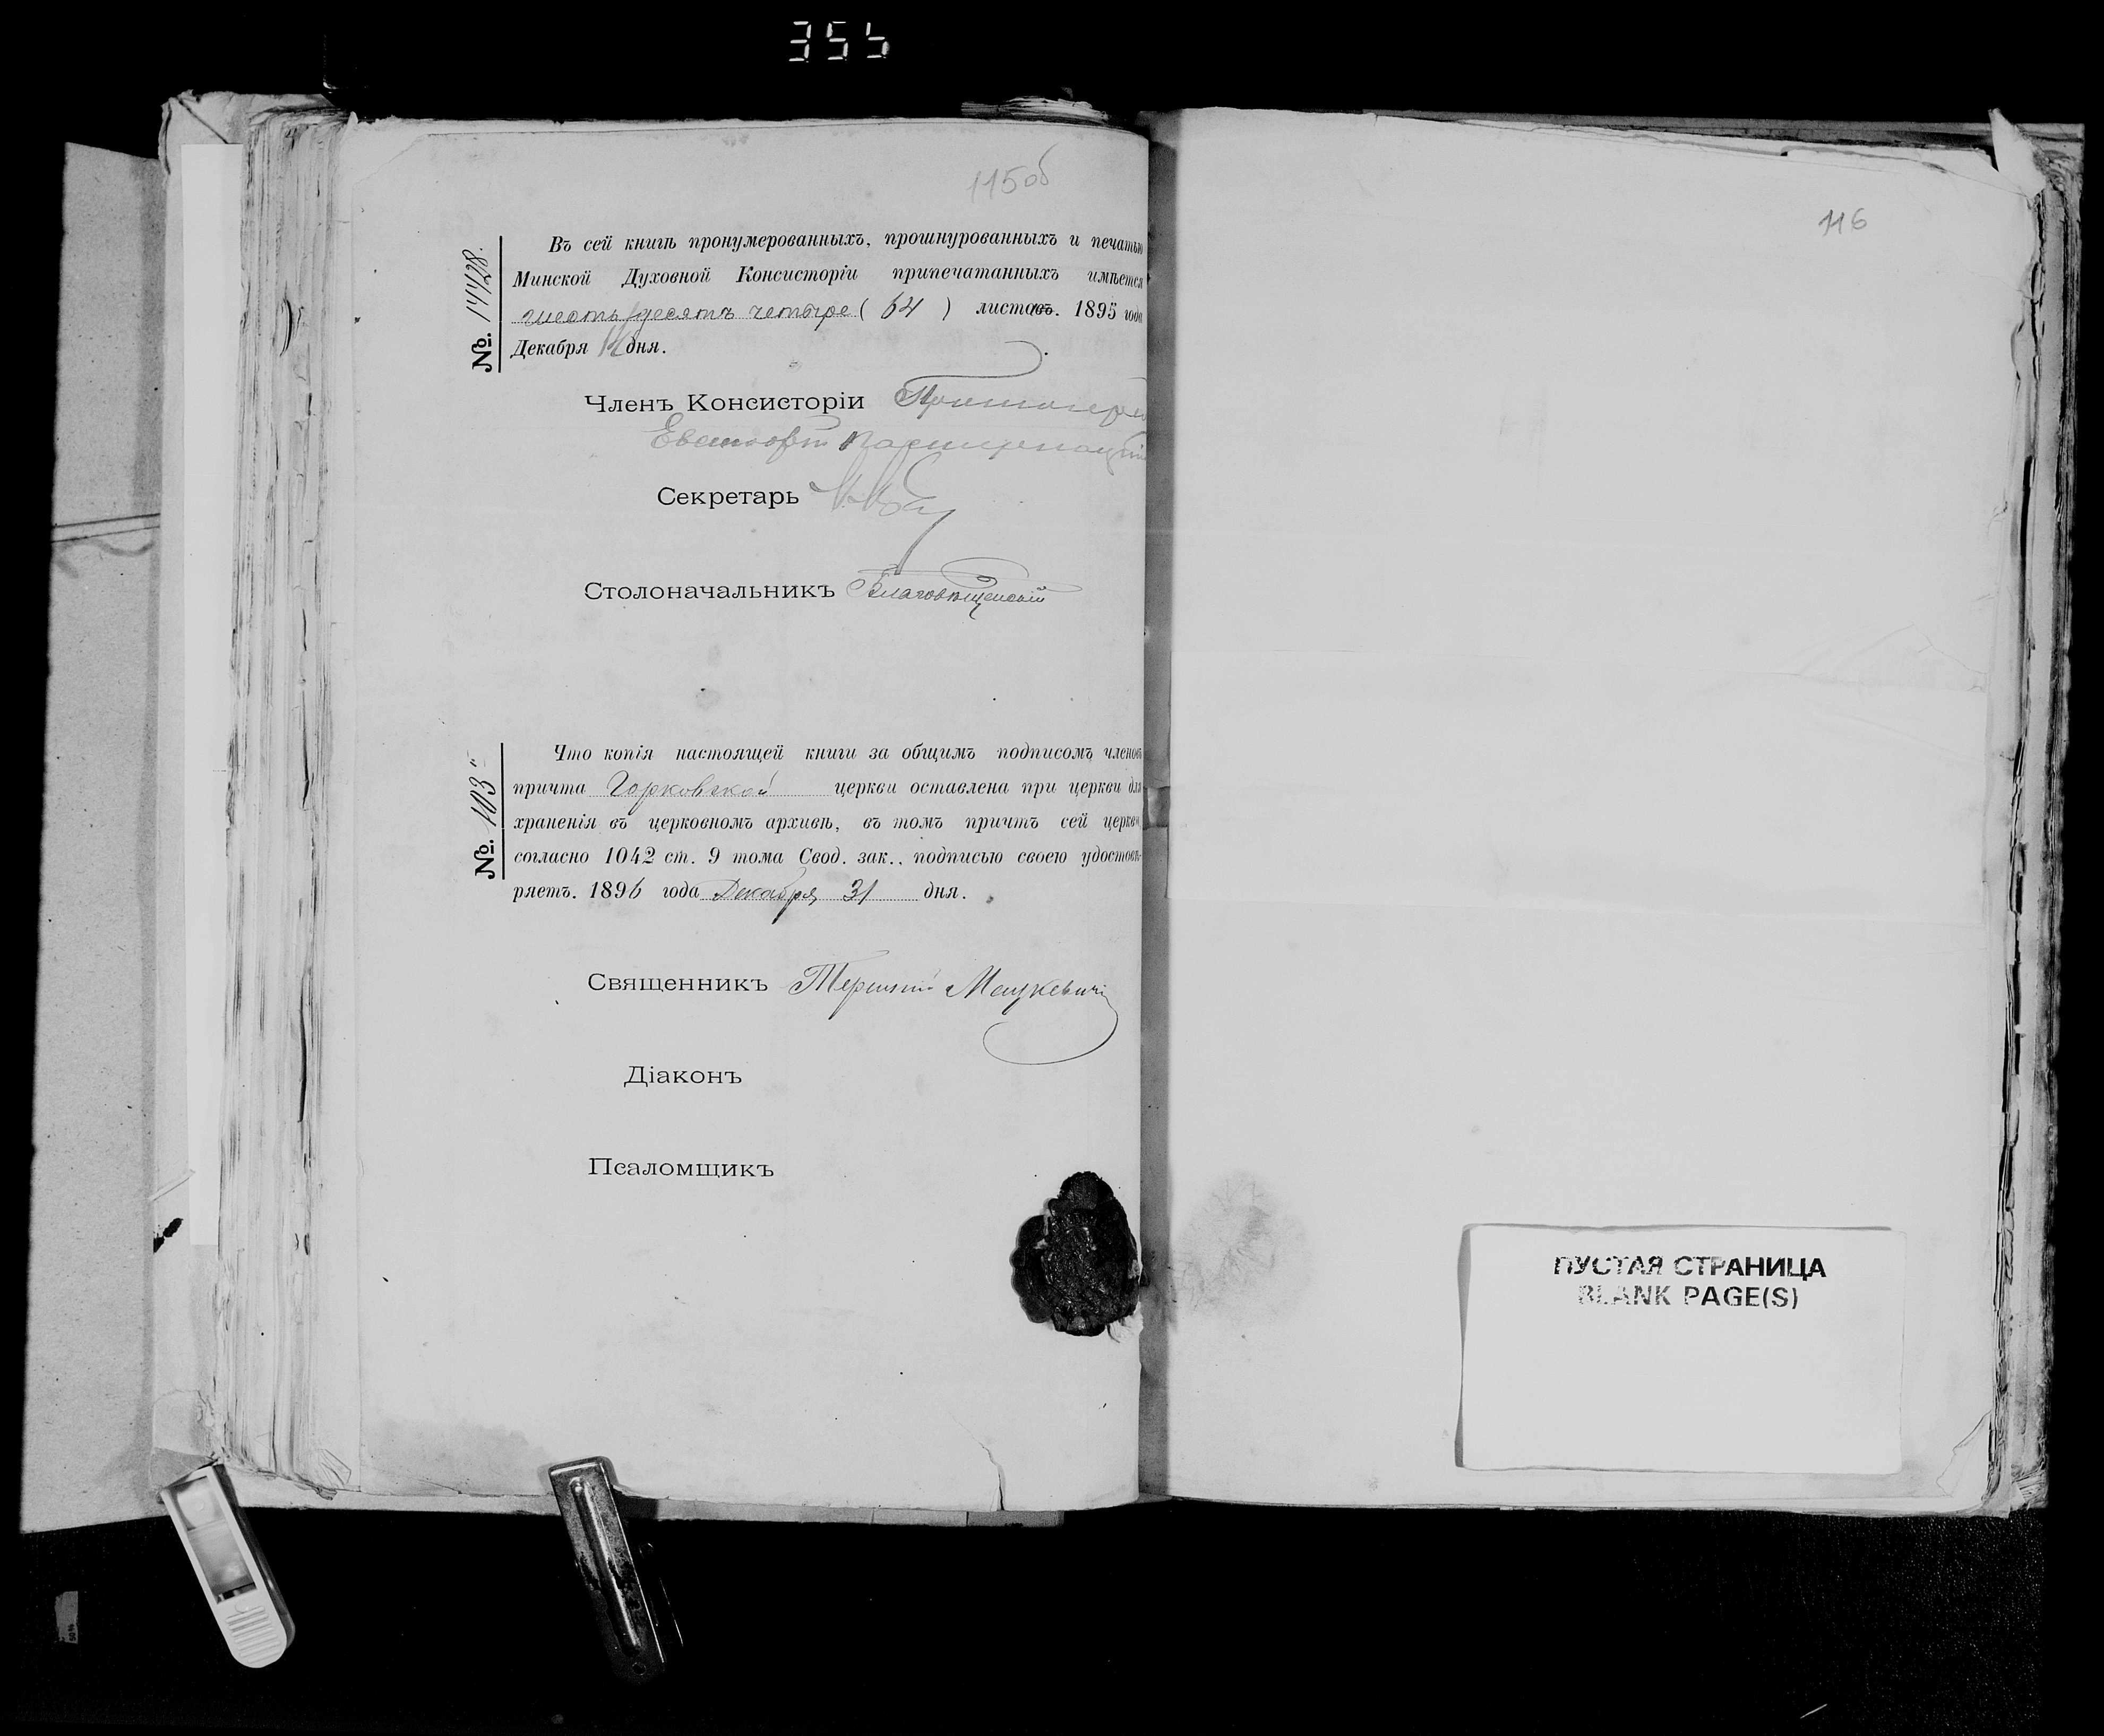 355
115об
№. 14428.
Въ сей книгѣ пронумерованныхъ, прошнурованныхъ и печатью
Минской Духовной Консисторіи припечатанныхъ имѣется
шестьдесятъ четыре ( 64 ) листовъ. 1895 года
Декабря дня.
Членъ Консисторіи
Секретарь
Столоначальникъ Благовѣщенскій
№. 103
Что копія настоящей книги за общимъ подписомъ членовъ
причта Горковской церкви оставлена при церкви для
храненія въ церковномъ архивѣ, въ томъ причтъ сей церкви,
согласно 1042 ст. 9 тома Свод. зак., подписью своею удостовѣ-
ряетъ. 1896 года Декабря 31 дня.
Священникъ Мацкевичъ
Діаконъ
Псаломщикъ
116
ПУСТАЯ СТРАНИЦА
BLANK PAGE(S)